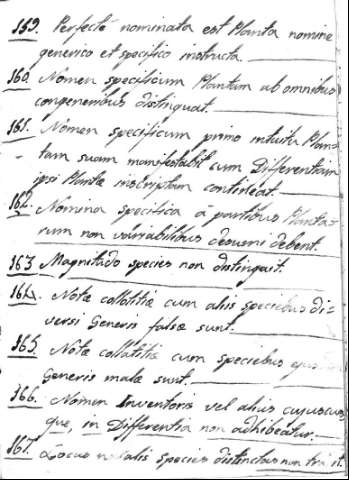 159. Perfectè nominata est Planta nomine
generico et specifico instructa.
160. Nomen specificum Plantam ab omnibus
congeneribus distinguat.
161. Nomen specificum primo intuitu Plan=
tam suam manifestabit cum Differentiam
ipsi Plantæ inscriptam contineat.
162. Nomina specifica à partibus Planta=
rum non variabilibus desumi debent.
163 Magnitudo species non distinguit.
164. Notæ collatitiæ cum aliis speciebus di=
versi Generis falsæ sunt.
165. Notæ collatitiæ cum speciebus
Generis malæ sunt.
166. Nomen Inventoris vel alius cujuscum
que, in Differentia non adhibeatur.
167. Locus natalis species distinctas non